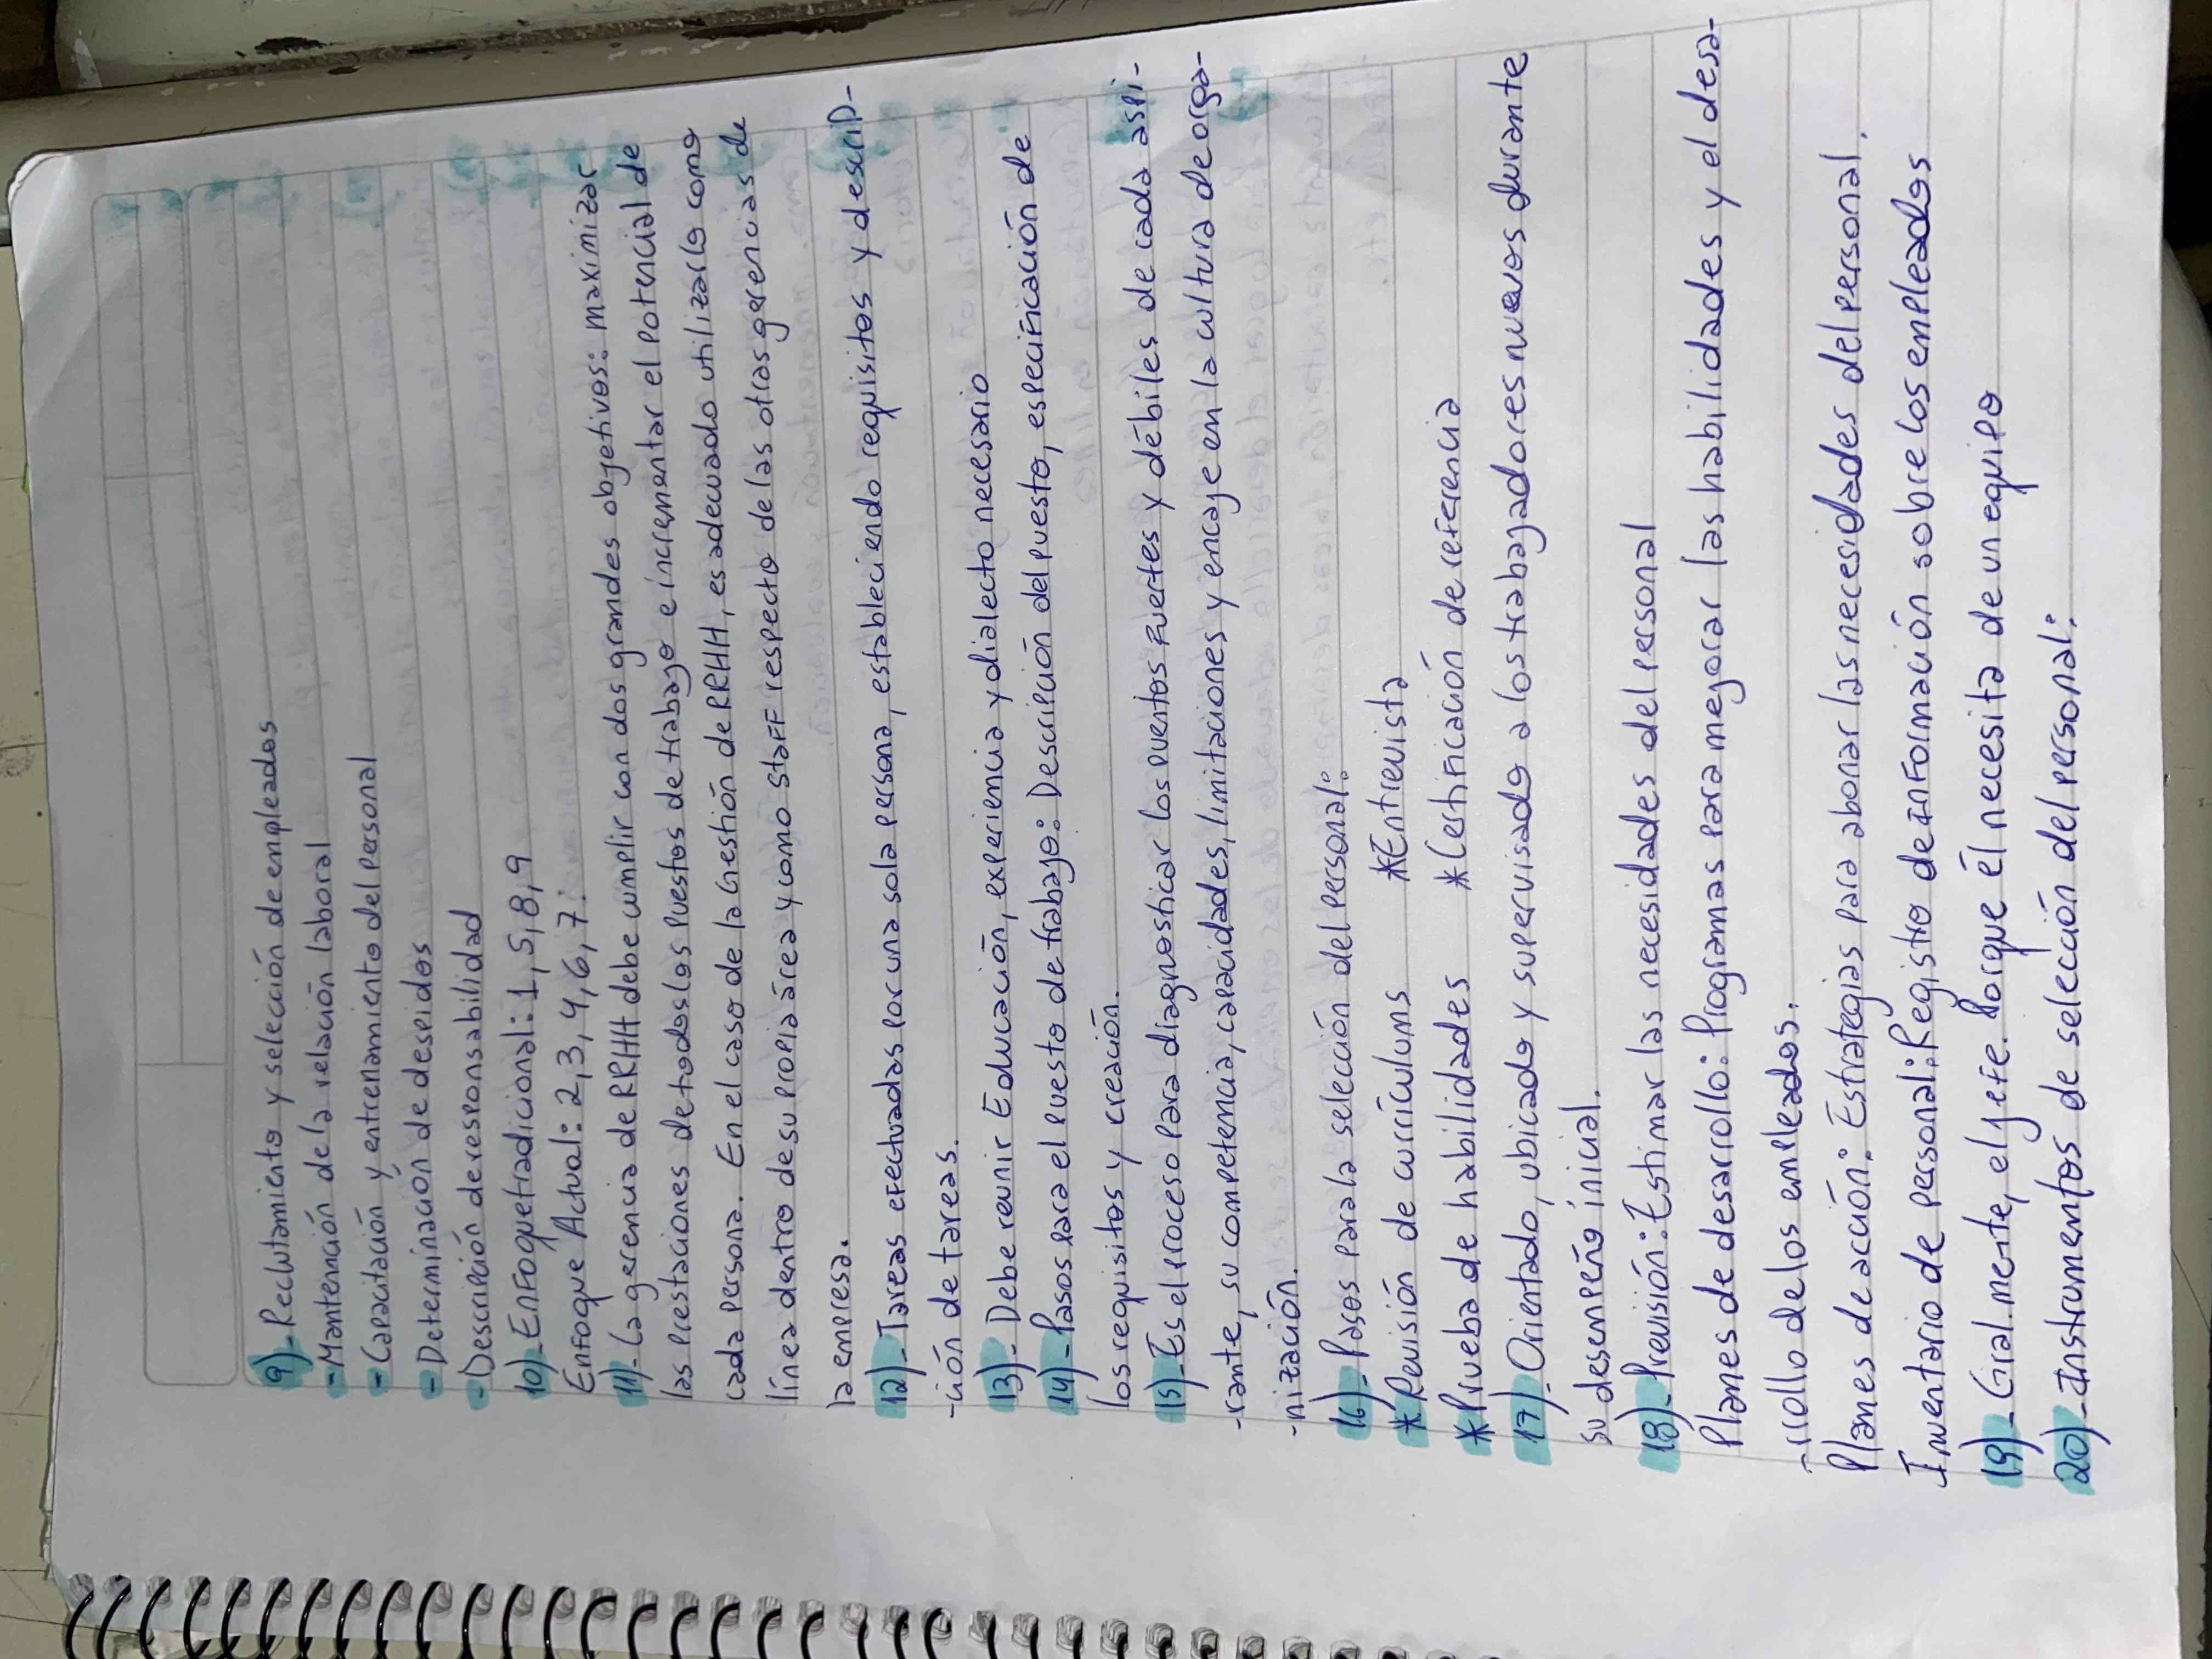 9)-Reclutamiento y selección de empleados
-Mantención de la relación laboral
-Capacitación y entrenamiento del personal
-Determinación de despidos
-Descripción de responsabilidad
10)-Enfoque tradicional: 1, 5, 8, 9
Enfoque Actual: 2, 3, 4, 6, 7.
11)-La gerencia de RRHH debe cumplir con dos grandes objetivos: maximizar
las prestaciones de todos los puestos de trabajo e incrementar el potencial de
cada persona. En el caso de la Gestión de RRHH, es adecuado utilizarlo como
línea dentro de su propia área y como staff respecto de las otras gerencias de
la empresa.
12)-Tareas efectuadas por una sola persona, estableciendo requisitos y descrip-
-ción de tareas.
13)-Debe reunir Educación, experiencia y dialecto necesario
14)-Pasos para el puesto de trabajo: Descripción del puesto, especificación de
los requisitos y creación.
15)-Es el proceso para diagnosticar los puentos fuertes y débiles de cada aspi-
-rante, su competencia, capacidades, limitaciones y encaje en la cultura de orga-
-nización.
16)-Pasos para la selección del personal:
*Revisión de currículums *Entrevista
*Prueba de habilidades *Certificación de referencia
17)-Orientado, ubicado y supervisado a los trabajadores nuevos durante
su desempeño inicial.
18)-Previsión: Estimar las necesidades del personal
Planes de desarrollo: Programas para mejorar las habilidades y el desa-
-rrollo de los empleados.
Planes de acción: Estrategias para abonar las necesidades del personal.
Inventario de personal: Registro de información sobre los empleados
19)-Gral.mente, el jefe. Porque él necesita de un equipo
20)-Instrumentos de selección del personal: